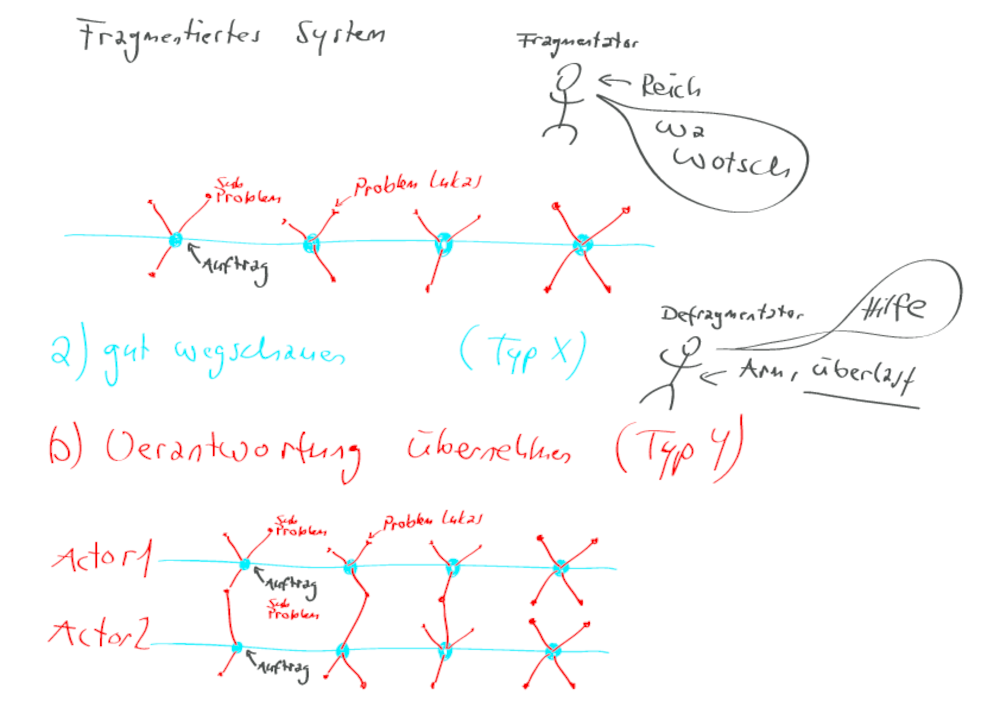 Fragmentiertes System
Fragmentator
Reich
wa
wotsch
Sub
Problem
Problem Lukas
Auftrag
Defragmentator
Hilfe
Arm, überlast
a) gut wegschauen (Typ X)
b) Verantwortung übernehmen (Typ Y)
Sub
Problem
Problem Lukas
Actor1
Auftrag
Sub
Problem
Actor2
Auftrag